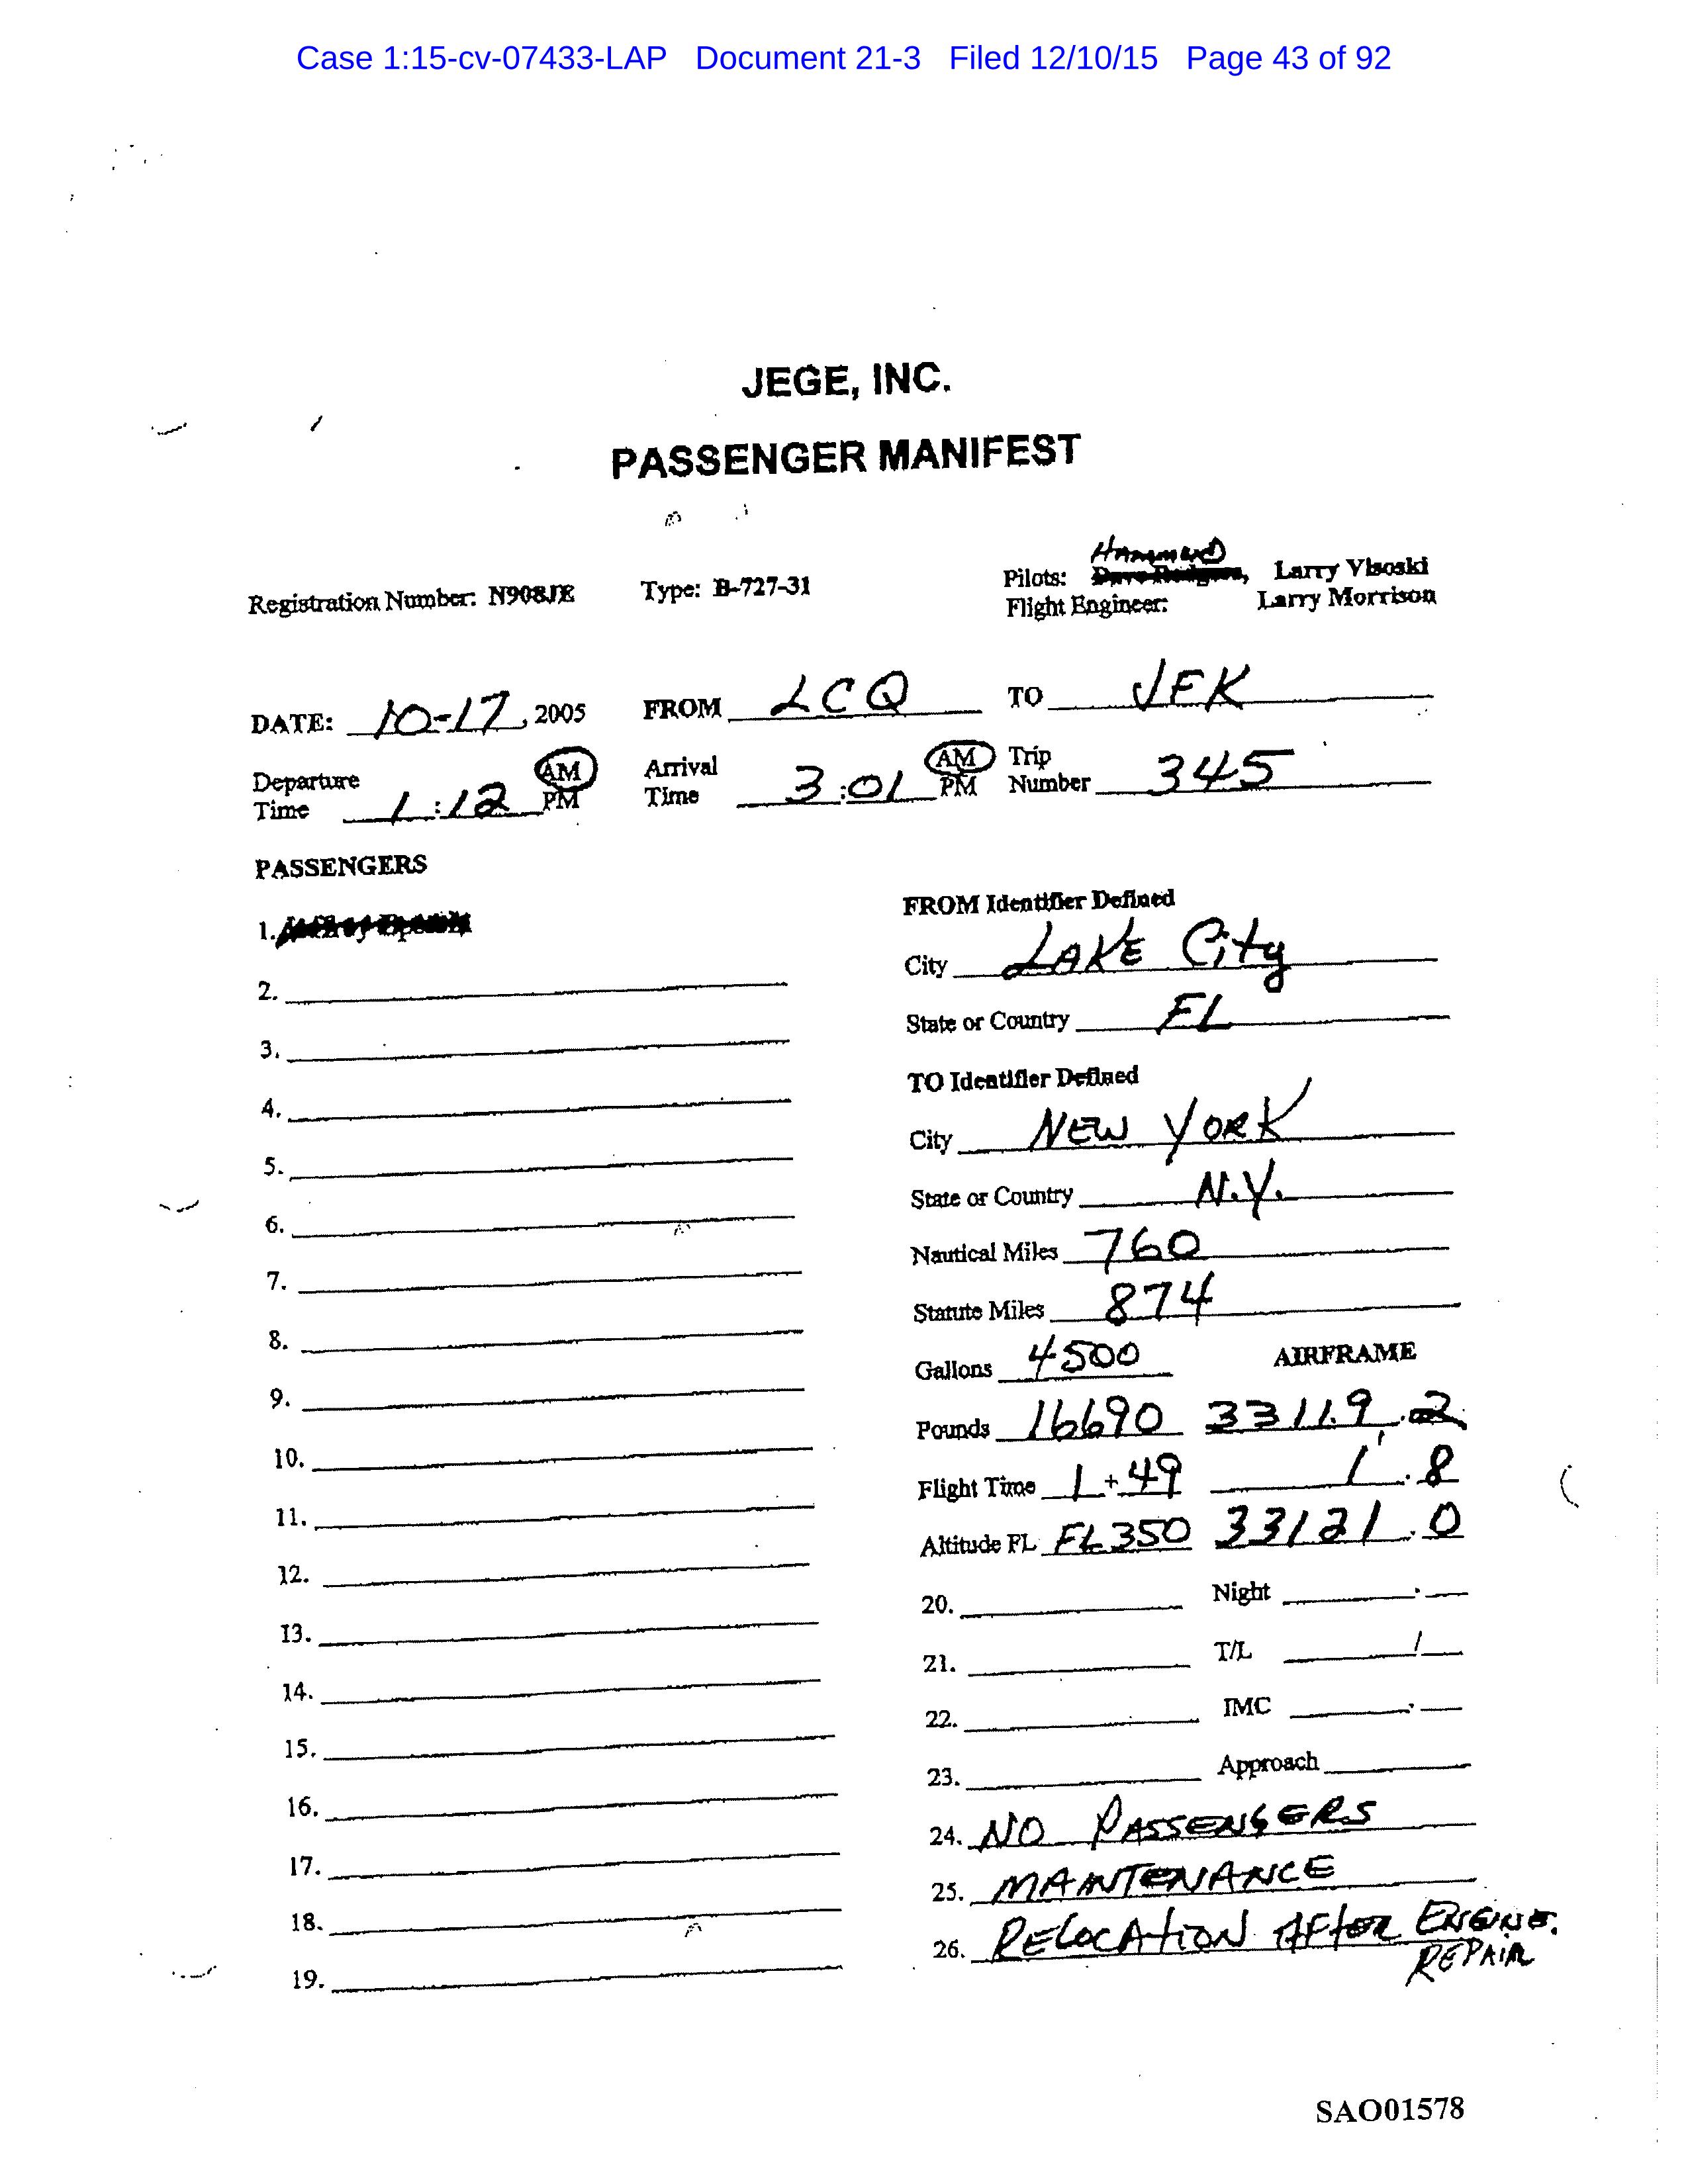 Case 1:15-cv-07433-LAP Document 21-3 Filed 12/10/15 Page 43 of 92
JEGE, INC.
PASSENGER MANIFEST
HAMMOND
Registration Number: N908JE Type: B-727-31 Pilots: Dave Rodgers, Larry Visoski
Flight Engineer: Larry Morrison
DATE: 10-17, 2005 FROM LCQ TO JFK
Departure Time 1:12 AM PM Arrival Time 3:01 AM PM Trip Number 345
PASSENGERS
1. Jeffrey Epstein
2.
3.
4.
5.
6.
7.
8.
9.
10.
11.
12.
13.
14.
15.
16.
17.
18.
19.
FROM Identifier Defined
City LAKE City
State or Country FL
TO Identifier Defined
City NEW YORK
State or Country N.Y.
Nautical Miles 760
Statute Miles 874
Gallons 4500 AIRFRAME
Pounds 16690 33119.2
Flight Time 1+49 1.8
Altitude FL FL350 33121.0
20. Night .
21. T/L /
22. IMC .
23. Approach
24. NO PASSENGERS
25. MAINTENANCE
26. RELOCATION AFTER ENGINE.
REPAIR
SAO01578